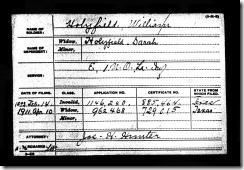 (3-3-5)
NAME OF SOLDIER: Holyfield, William
NAME OF DEPENDENT: Widow, Holyfield Sarah
Minor,
SERVICE: E, 1 N.O. La. Inf
DATE OF FILING. CLASS. APPLICATION NO. CERTIFICATE NO. STATE FROM WHICH FILED.
Feb. 14 Invalid, 1146,260 887,464
1911 Apr. 10 Widow, 962468 729615 Texas
Minor,
ATTORNEY: Jos. H. Hunter